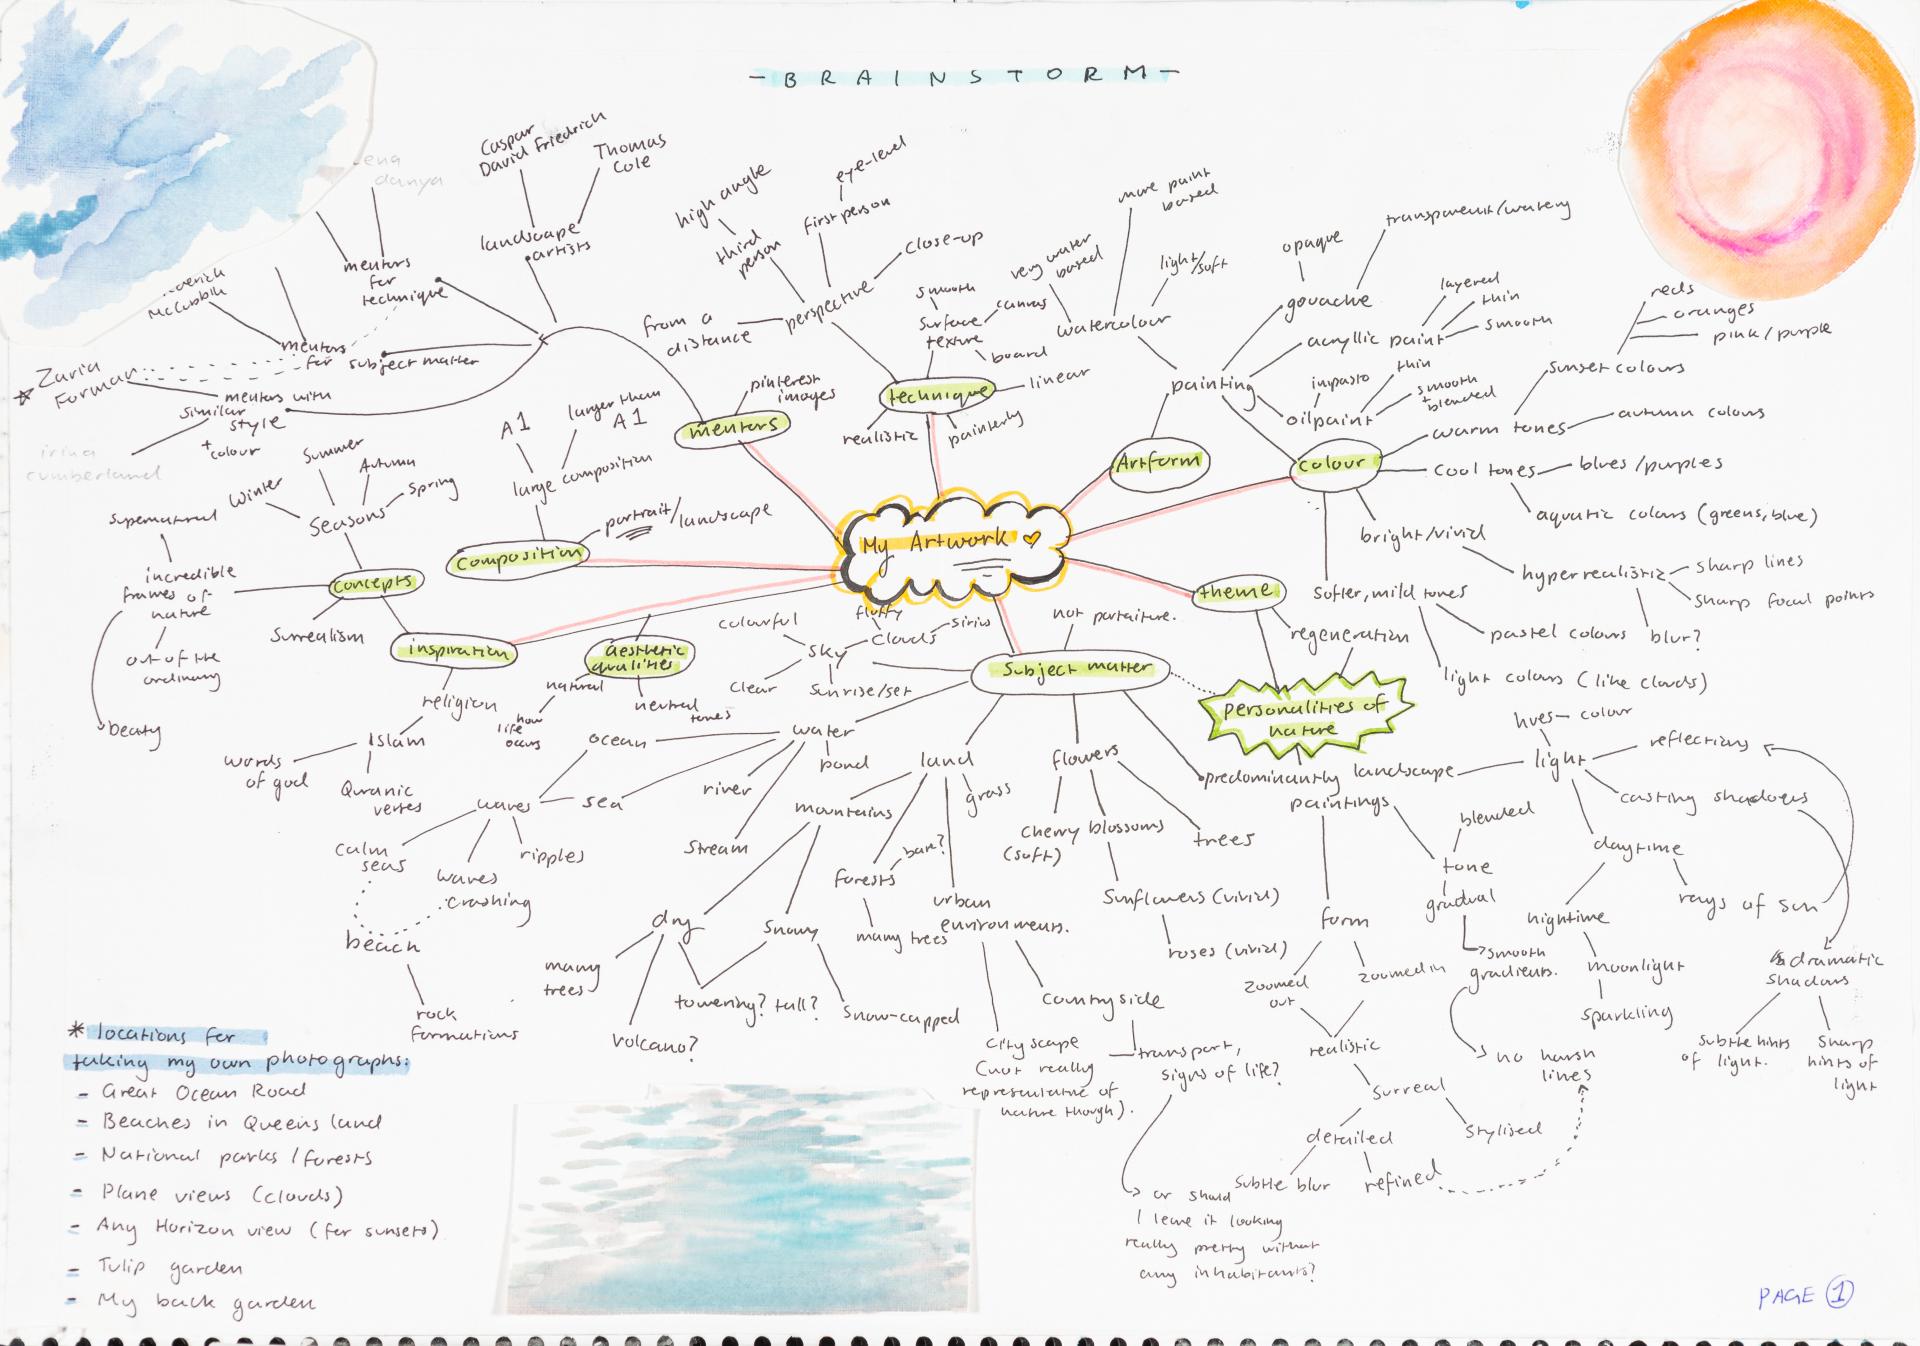 - B R A I N S T O R M -
My Artwork
mentors
pinterest
images
landscape
artists
Caspar
David Friedrich
Thomas
Cole
mentors
for
technique
ena
danya
mentors
for subject matter
McCubbin
* Zaria
Forman
mentors with
similar
style
+
colour
irina
cumberland
technique
perspective
third
person
high angle
first person
eye-level
close-up
from a
distance
surface
texture
smooth
canvas
board
linear
painterly
realistic
Artform
painting
watercolour
very water
based
more paint
based
light/soft
gouache
opaque
transparent/watery
acryllic paint
layered
thin
smooth
oilpaint
impasto
thin
smooth
+ blended
colour
warm tones
sunset colours
reds
oranges
pink/purple
autumn colours
cool tones
blues/purples
aquatic colours (greens, blue)
bright/vivid
hyperrealistic
sharp lines
sharp focal points
blur?
softer, mild tones
pastel colours
light colours (like clouds)
theme
regeneration
personalities of
nature
composition
large composition
A1
larger than
A1
portrait/landscape
concepts
seasons
Winter
Summer
Autumn
Spring
incredible
frames of
nature
supernatural
out of the
ordinary
beauty
Surrealism
inspiration
religion
Islam
words
of god
Quranic
verses
aesthetic
qualities
natural
how
life
occurs
neutral
tones
Subject matter
not portaiture.
sky
colourful
clouds
fluffy
clear
sunrise/set
water
ocean
sea
waves
calm
seas
waves
crashing
ripples
beach
rock
formations
river
stream
pond
land
mountains
dry
many
trees
volcano?
towering? tall?
snowy
snow-capped
forests
many trees
grass
urban
environments.
cityscape
(not really
representative of
nature though).
countryside
transport,
signs of life?
or should
I leave it looking
really pretty without
any inhabitants?
flowers
cherry blossoms
(soft)
sunflowers (vivid)
roses (vivid)
trees
predominantly landscape
paintings
form
zoomed
out
zoomed in
realistic
surreal
detailed
stylised
subtle blur
refined
tone
blended
gradual
smooth
gradients.
no harsh
lines
light
hues- colour
reflections
casting shadows
daytime
rays of sun
nightime
moonlight
sparkling
dramatic
shadows
subtle hints
of light.
sharp
hints of
light
* locations for
taking my own photographs:
- Great Ocean Road
- Beaches in Queensland
- National parks / forests
- Plane views (clouds)
- Any Horizon view (for sunsets)
- Tulip garden
- My back garden
PAGE 1